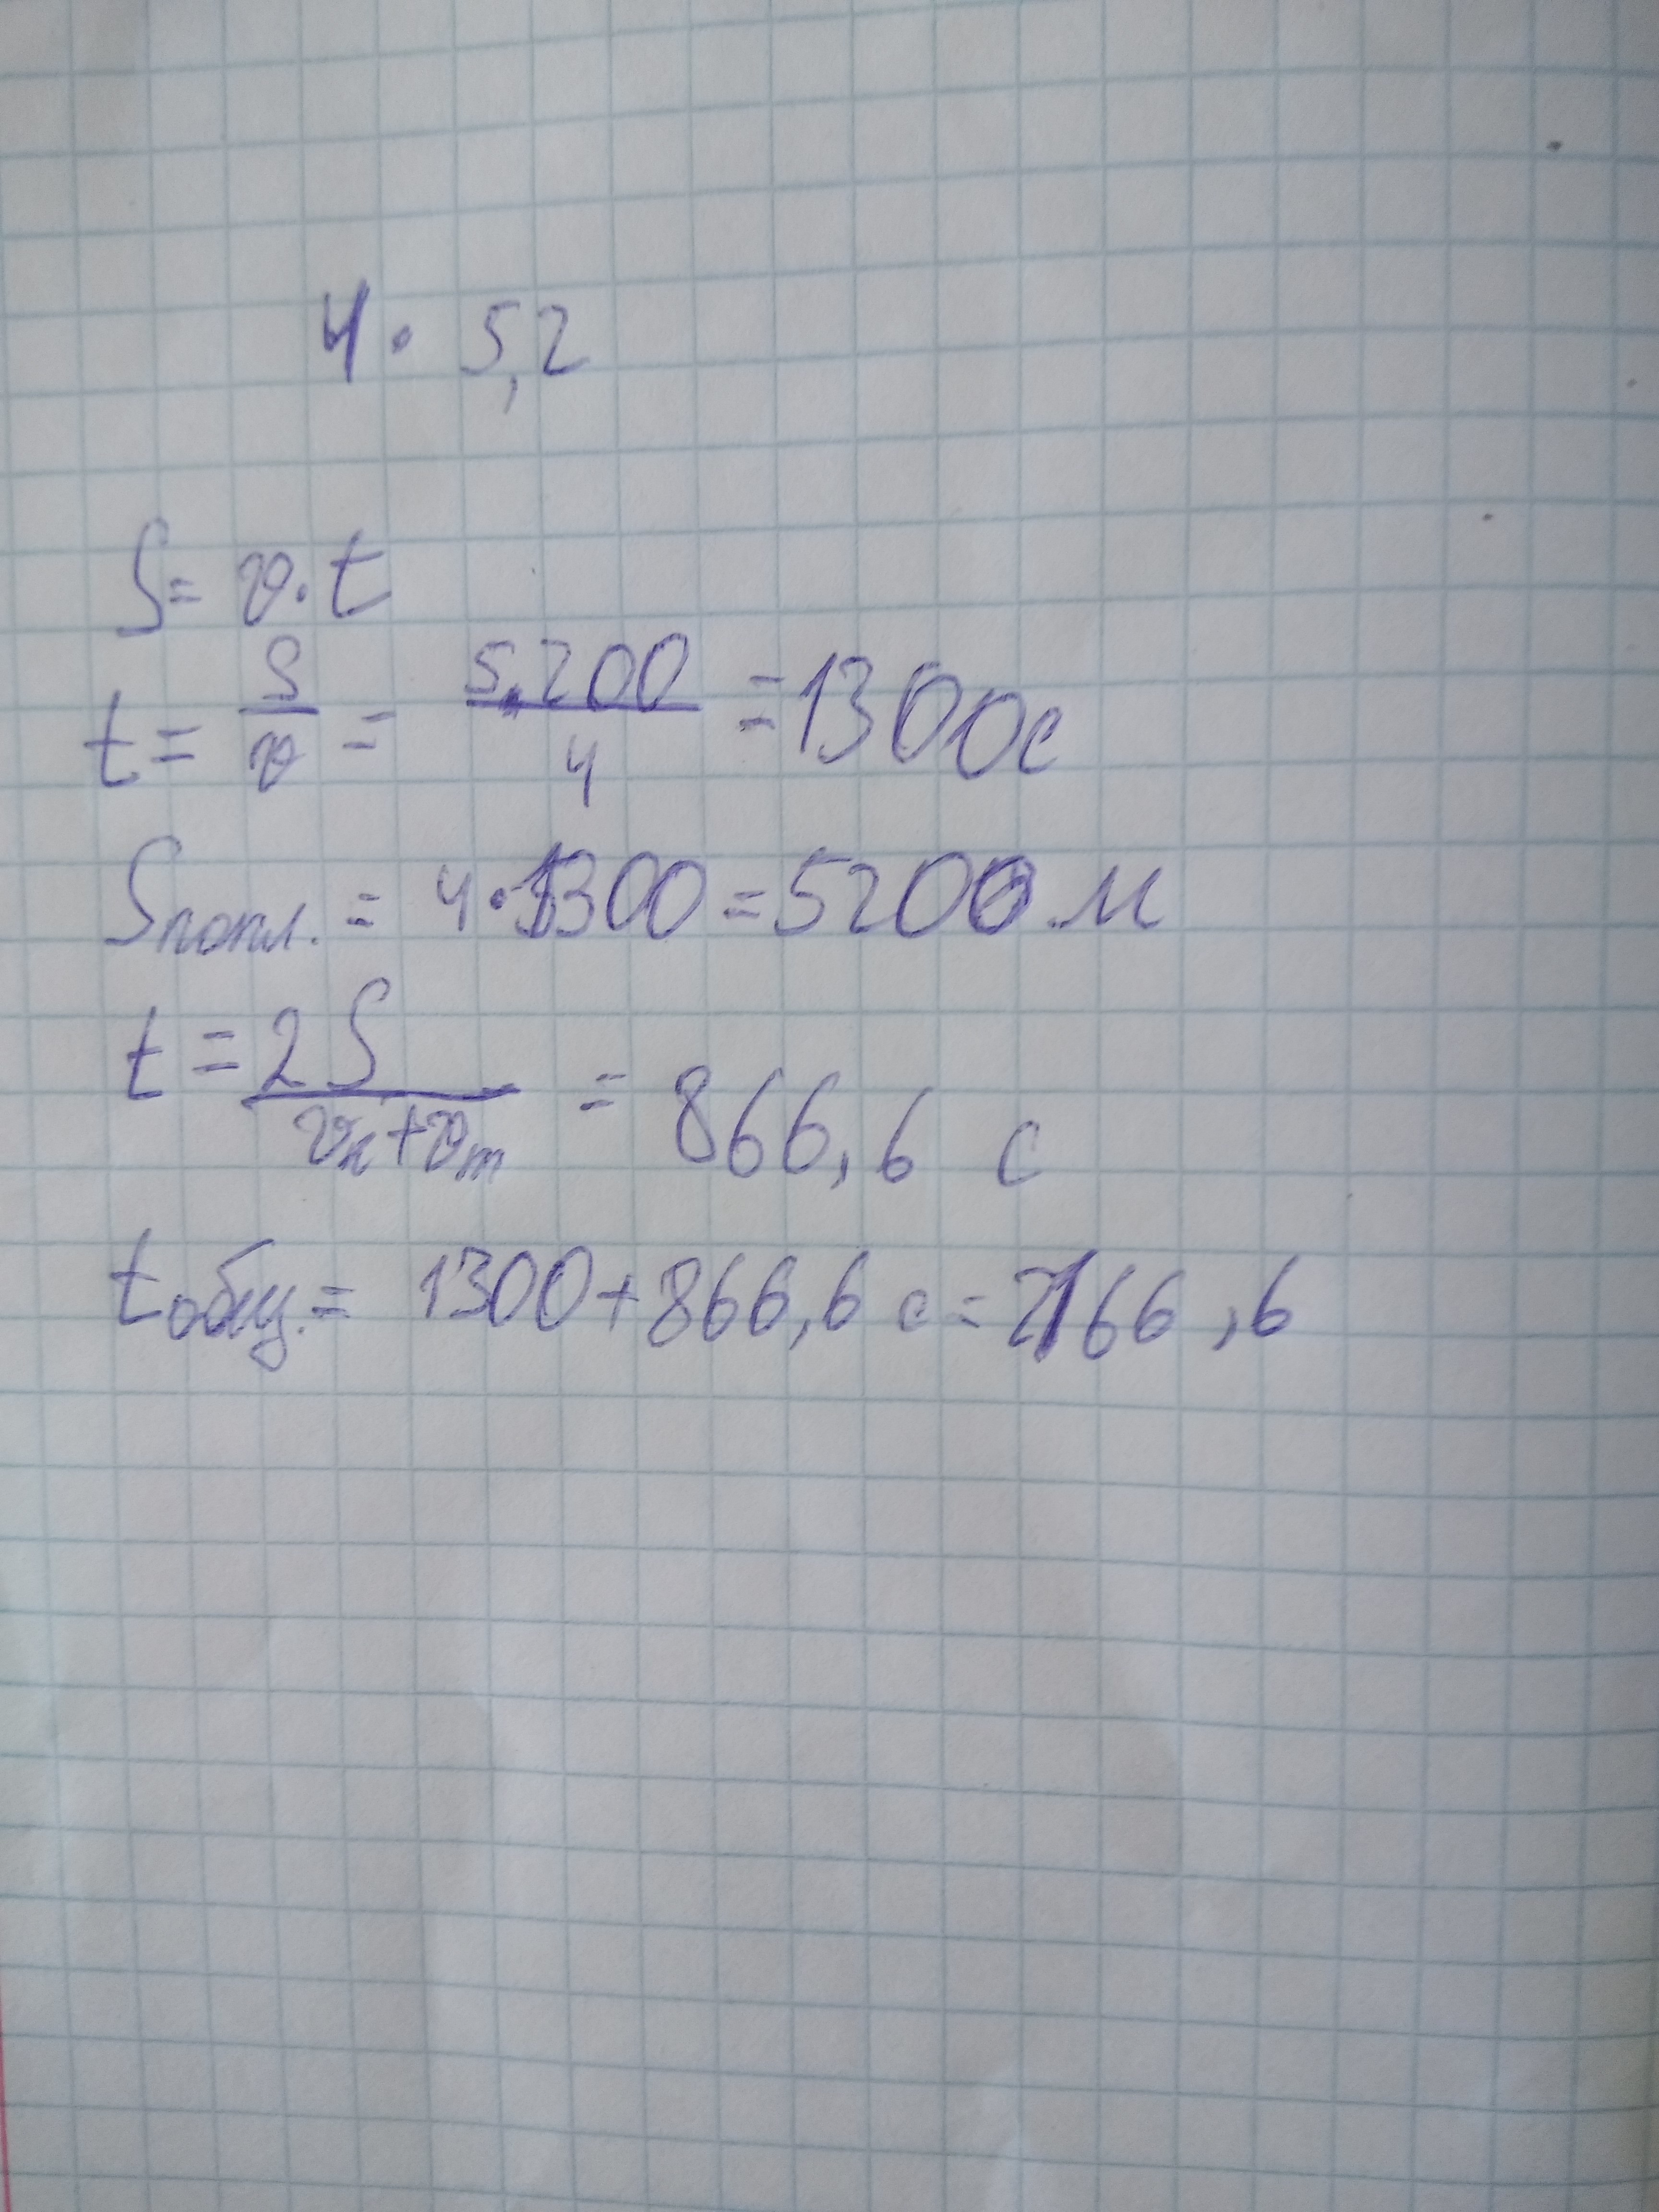 4 · 5,2
S = v · t
t = S/v = 5200/4 = 1300 с
Sпопл. = 4 · 1300 = 5200 м
t = 2S/(vк + vт) = 866,6 с
tобщ. = 1300 + 866,6 с = 2166,6